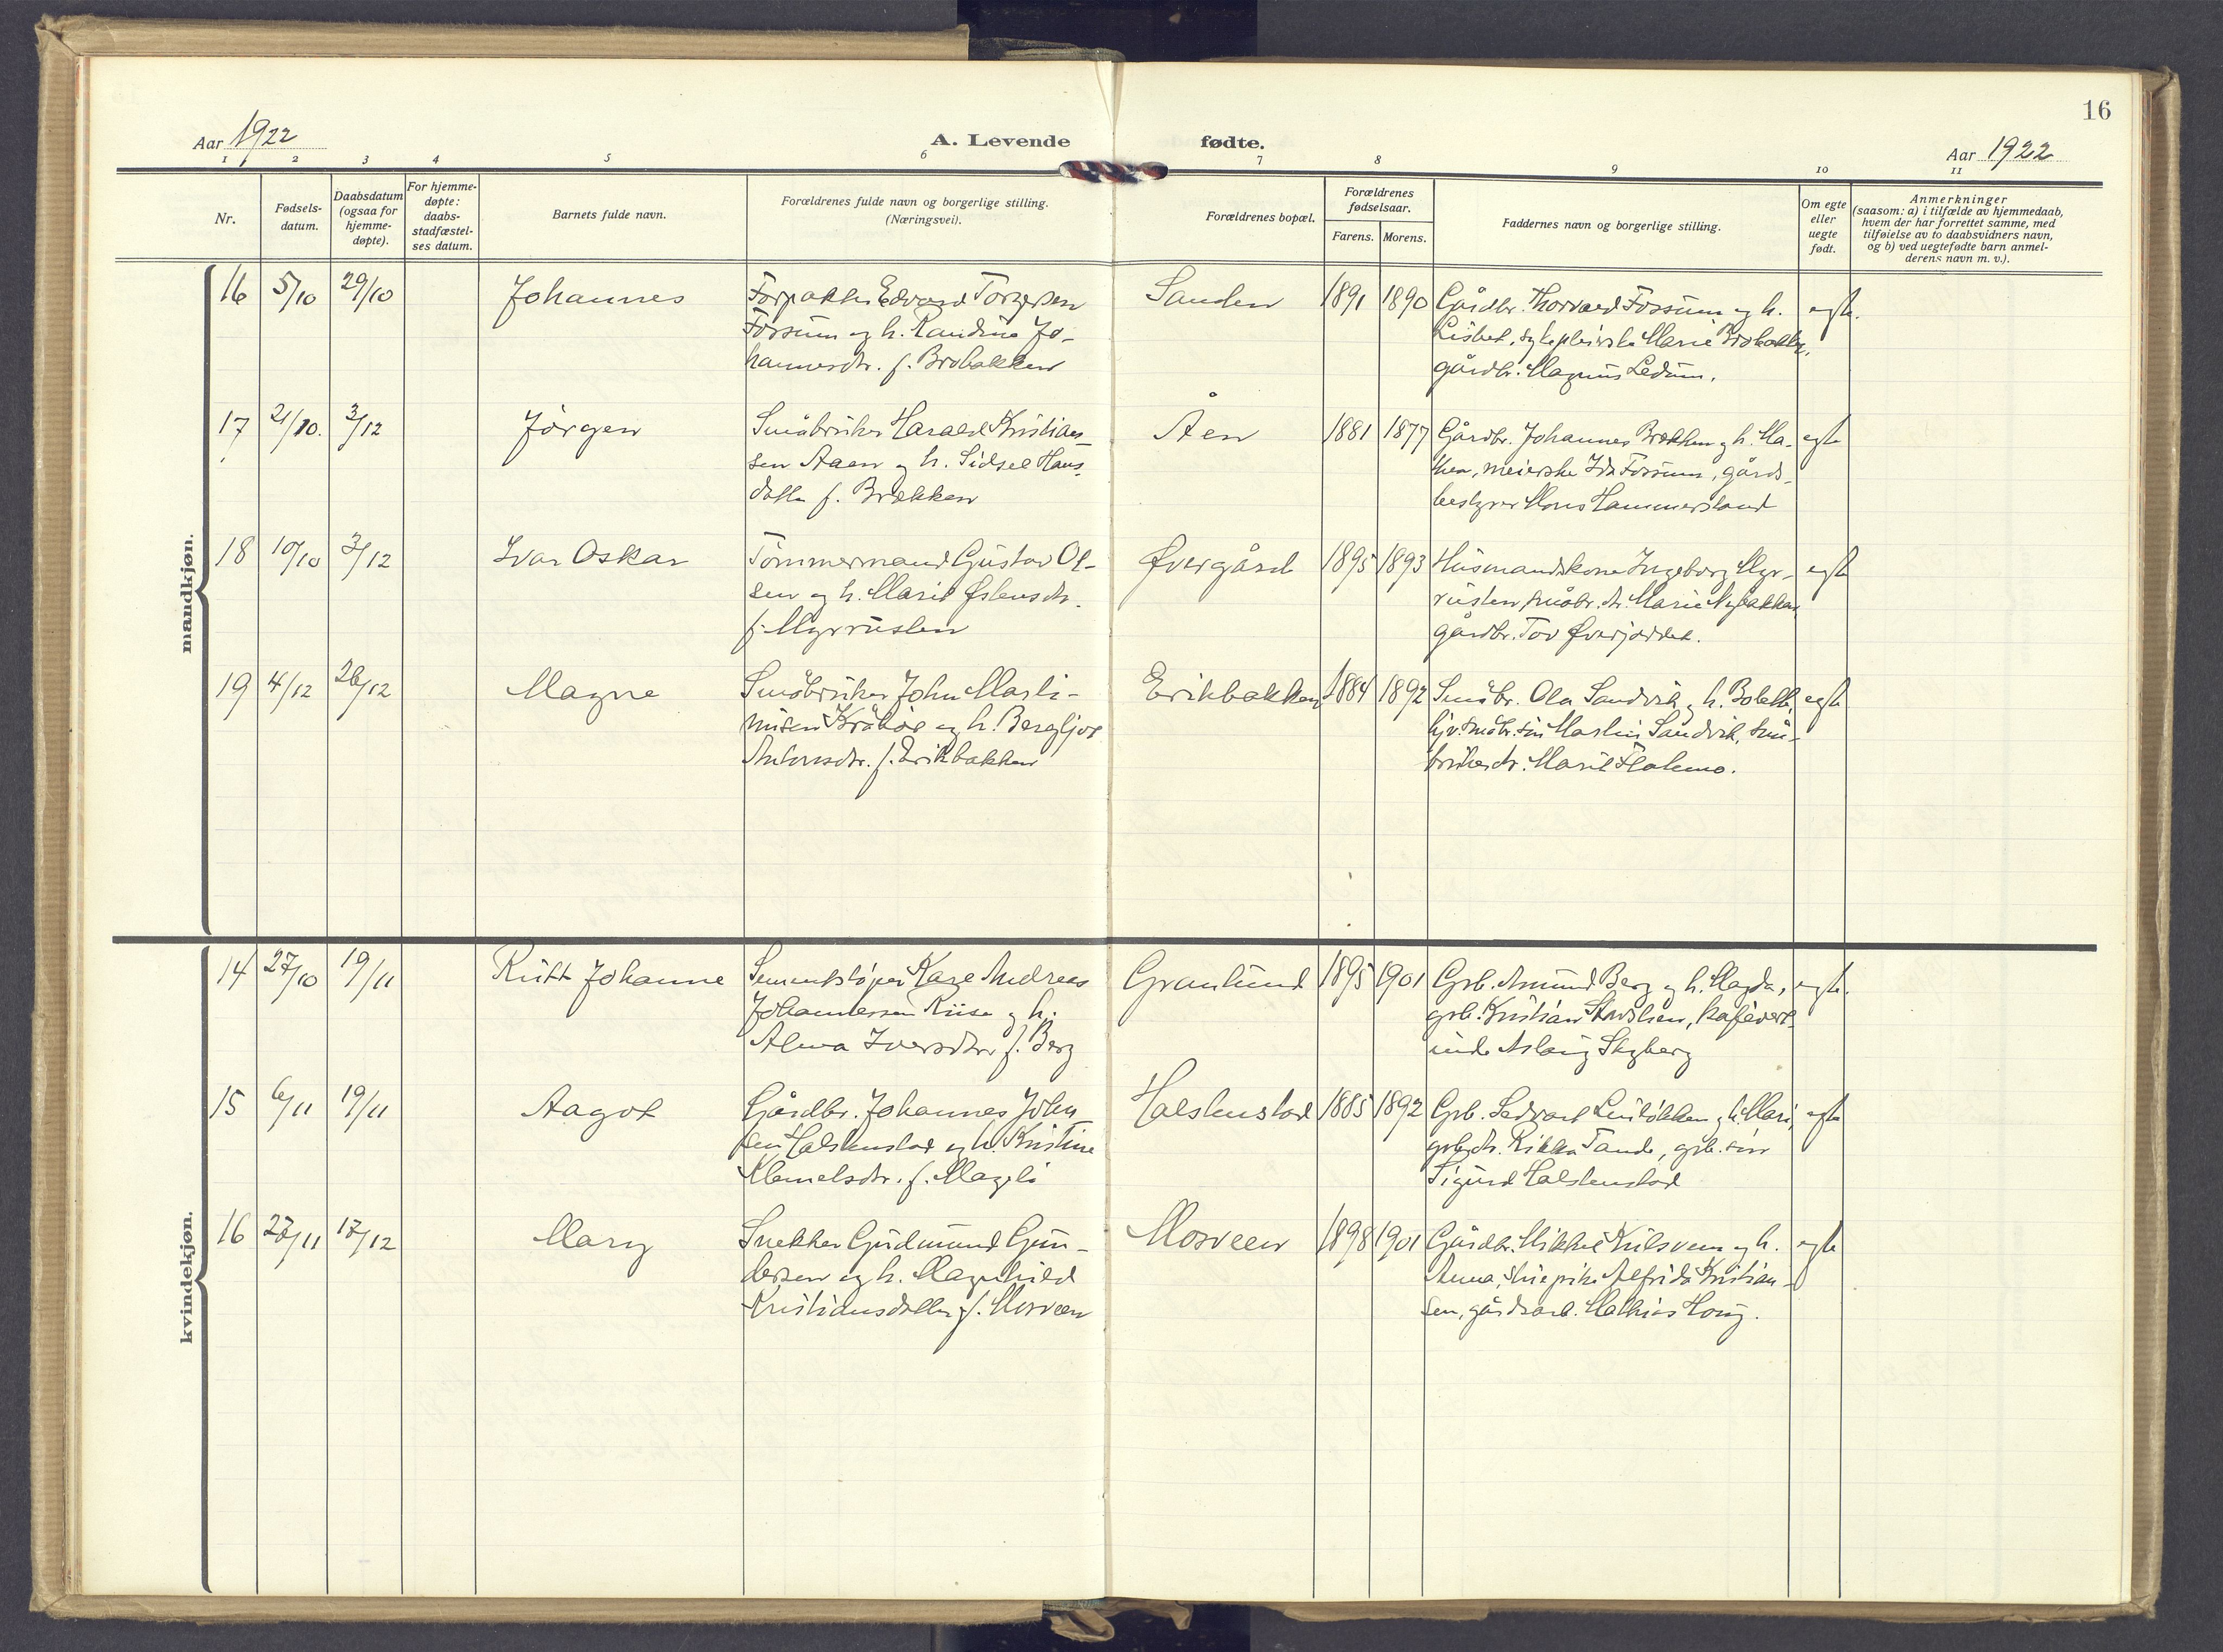 16
Aar 1922
A. Levende fødte.
Aar 1922
1 2 3 4 5 6 7 8 9 10 11
Nr.
Fødsels-
datum.
Daabsdatum
(ogsaa for
hjemme-
døpte).
For hjemme-
døpte:
daabs-
stadfæstel-
ses datum.
Barnets fulde navn.
Forældrenes fulde navn og borgerlige stilling.
(Næringsvei).
Forældrenes bopæl.
Forældrenes
fødselsaar.
Farens. Morens.
Faddernes navn og borgerlige stilling.
Om egte
eller
uegte
født.
Anmerkninger
(saasom: a) i tilfælde av hjemmedaab,
hvem der har forrettet samme, med
tilføielse av to daabsvidners navn,
og b) ved uegtefødte barn anmel-
derens navn m. v.).
mandkjøn.
16 5/10 29/10 Johannes
Forpakter Edvard Torgersen
Fossum og h. Randine Jo-
hannesdtr. f. Brobakken
Sanden 1891 1890
Gårdbr. Thorvald Fossum og h.
Lisbet, sykepleierske Marie Brobakken,
gårdbr. Magnus Ledum.
egte.
17 21/10. 3/12 Jörgen
Småbruker Harald Kristian-
sen Aaen og h. Sidsel Hans-
datter f. Brækken
Åen 1881 1877
Gårdbr. Johannes Brækken og h. Ma-
thea, meierske Ida Fossum, gårds-
bestyrer Mons Hammersland
egte
18 10/10 3/12 Ivar Oskar
Tömmermand Gustav Ol-
sen og h. Marit Østensdtr.
f. Myrrusten
Øvergård 1895 1893
Husmandskone Ingeborg Myr-
rusten, småbr. dtr. Marie Nybakken,
gårdbr. Tov Øverjordet.
egte
19 4/12 26/12 Magne
Småbruker John Marti-
nusen Kråböl og h. Bergljot
Antonsdtr. f. Erikbakken
Erikbakken 1884 1892
Småbr. Ola Sandvik og h. Bolette,
hjv. småbr. sön Martin Sandvik, små-
brukerdtr. Marit Flatmo.
egte
kvindekjøn.
14 27/10 19/11 Rutt Johanne
Sementstöper Karl Andreas
Johannessen Riise og h.
Alma Iversdtr. f. Berg
Granlund 1895 1901
Grb. Amund Berg og h. Magda,
grb. Kristian, kafévert-
inde Aslaug Skyberg
egte.
15 6/11 19/11 Aagot
Gårdbr. Johannes John-
sen Halstenstad og h. Kristine
Klemetsdtr. f. Mageli
Halstenstad 1885 1892
Grb. Sedvart Linlökken og h. Mari,
grb. dtr. Rikka Tande, grb. sön
Sigurd Halstenstad
egte
16 27/11 17/12 Mary
Snekker Gudmund Gun-
dersen og h. Magnhild
Kristiansdatter f. Mosveen
Mosveen 1898 1901
Gårdbr. Mikkel Kulsveen og h.
Anna, Alfrida Kristian-
sen, gårdsarb. Mathias Haug.
egte